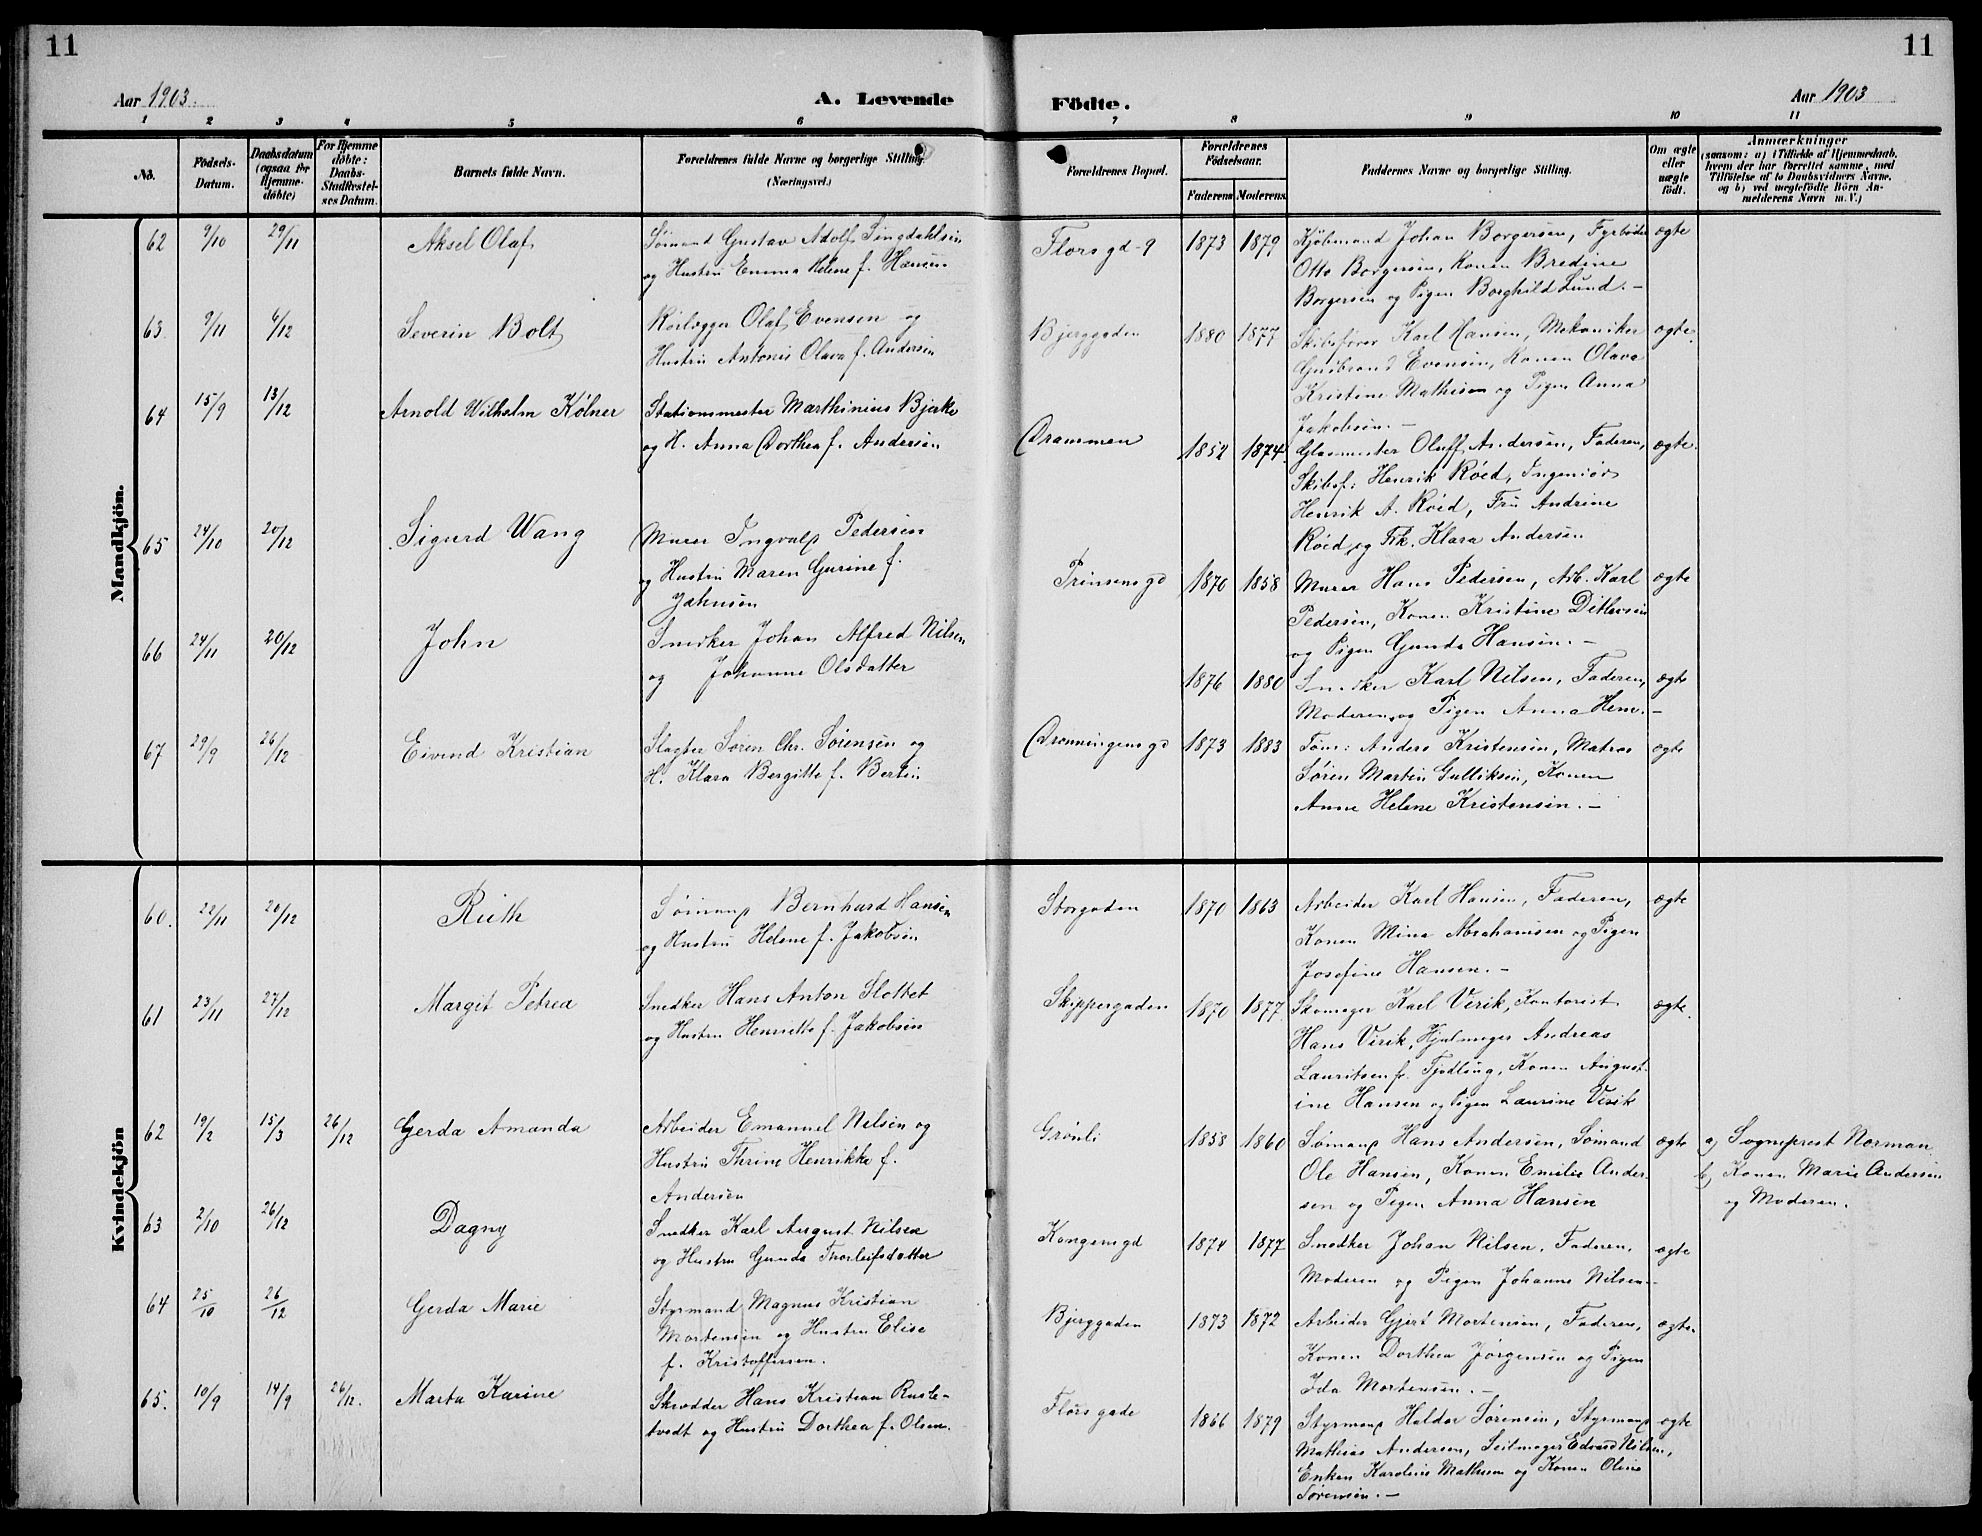 11
11
Aar 1903.
A. Levende
Födte.
Aar 1903
1 2 3 4 5 6 7 8 9 10 11
No.
Födsels-Datum.
Daabsdatum (ogsaa for Hjemmedöbte)
For Hjemmedöbte: Daabs-Stadfæstelses Datum.
Barnets fulde Navn.
Forældrenes fulde Navne og borgerlige Stilling. (Næringsvei.)
Forældrenes Bopæl.
Forældrenes Födselsaar.
Faderens Moderens
Faddernes Navne og borgerlige Stilling.
Om ægte eller uægte födt.
Anmærkninger
(saasom: a) i Tilfælde af Hjemmedaab, hvem der har forrettet samme, med Tilföielse af to Daabsvidners Navne, og b) ved uægtefödte Börn Anmelderens Navn m. V.)
Mandkjön.
62 9/10 29/11 Aksel Olaf
Sømand Gustav Adolf Singdahlsen
og Hustru Emma Helene f. Hansen.
Florsgd-9 1873 1879
Kjøbmand Johan Borgersen, Fyrbøder ægte
Otto Borgersen, Konen Bredine
Borgersen og Pigen Borghild Lund. -
63 9/11 6/12 Severin Bolt
Rørlægger Olaf Evensen og
Hustru Antonis Olava f. Andersen
Bjerggaden 1880 1877
Skibsfører Karl Hansen, Mekaniker ægte.
Gudbrand Evensen, Konen Olava
Kristine Mathisen og Pigen Anna
Jakobsen. -
64 15/9 13/12 Arnold Wilhelm Kølner
Stationsmester Marthinius Bjerke
og H. Anna Dorthea f. Andersen
Drammen 1852 1874.
Glasmester Oluff Andersen, Faderen, ægte.
Skibsf: Henrik Røed, Ingeniør
Henrik A. Røed, Fru Andrine
Røed og Frk. Klara Andersen
65 24/10 20/12 Sigurd Wang
Murer Ingvald Pedersen
og Hustru Maren Gurine f.
Jahnsen
Prinsensgd 1870 1858
Murer Hans Pedersen, Arb. Karl ægte
Pedersen, Konen Kristine Ditlevsen
og Pigen Gunda Hansen. -
66 24/11 20/12 John
Snedker Johan Alfred Nilsen
og Johanne Olsdatter
1876 1880
Snedker Karl Nilsen, Faderen, ægte
Moderen, og Pigen Anna Hem. -
67 29/9 26/12 Eivend Kristian
Slagter Søren Chr. Sørensen og
H. Klara Bergitte f. Bertin
Dronningensgd 1873 1883
Tøm: Anders Kristensen, Matros ægte
Søren Martin Gulliksen, Konen
Anne Helene Kristensen. -
Kvindekjön
60. 22/11 20/12 Ruth
Sømand Bernhard Hansen
og Hustru Helene f. Jakobsen
Storgaden 1870 1863
Arbeider Karl Hansen, Faderen, ægte
Konen Mina Abrahamsen og Pigen
Josefine Hansen. -
61 23/11 27/12 Margit Petrea
Snedker Hans Anton Slottet
og Hustru Henriette f. Jakobsen
Skippergaden 1870 1877
Skomager Karl Virik, Kontorist ægte.
Hans Virik, Hjulmager Andreas
Lauritsen fr. Tjodling, Konen August-
ine Hansen og Pigen Laurine Virik
62 19/2 15/3 26/12 Gerda Amanda
Arbeider Emanuel Nilsen og
Hustru Thrine Henrikke f.
Andersen
Grønli 1858 1860
Sømand Hans Andersen, Sømand ægte
Ole Hansen, Konen Emilie Ander-
sen og Pigen Anna Hansen
a) Sogneprest Norman
b) Konen Marie Andersen
og Moderen.
63 2/10 26/12 Dagny
Snedker Karl August Nilsen
og Hustru Gunda Thorleifsdatter
Kongensgd 1874 1877
Snedker Johan Nilsen, Faderen, ægte
Moderen og Pigen Johanne Nilsen. -
64 25/10 26/12 Gerda Marie
Styrmand Magnus Kristian
Mortensen og Hustru Elise
f. Kristoffersen.
Bjerggaden 1873 1872
Arbeider Gjert Mortensen, Faderen, ægte.
Konen Dorthea Jørgensen og Pigen
Ida Mortensen. -
65. 10/9 14/9 26/12. Marta Karine
Skrædder Hans Kristian Ruste-
tvedt og Hustru Dorthea f. Olsen.
Florsgade 1866 1879
Styrmand Haldor Sørensen, Styrmand ægte
Mathias Andersen, Seilmager Edvard Nilsen,
Enken Karoline Mathisen og Konen Oline
Sørensen. -